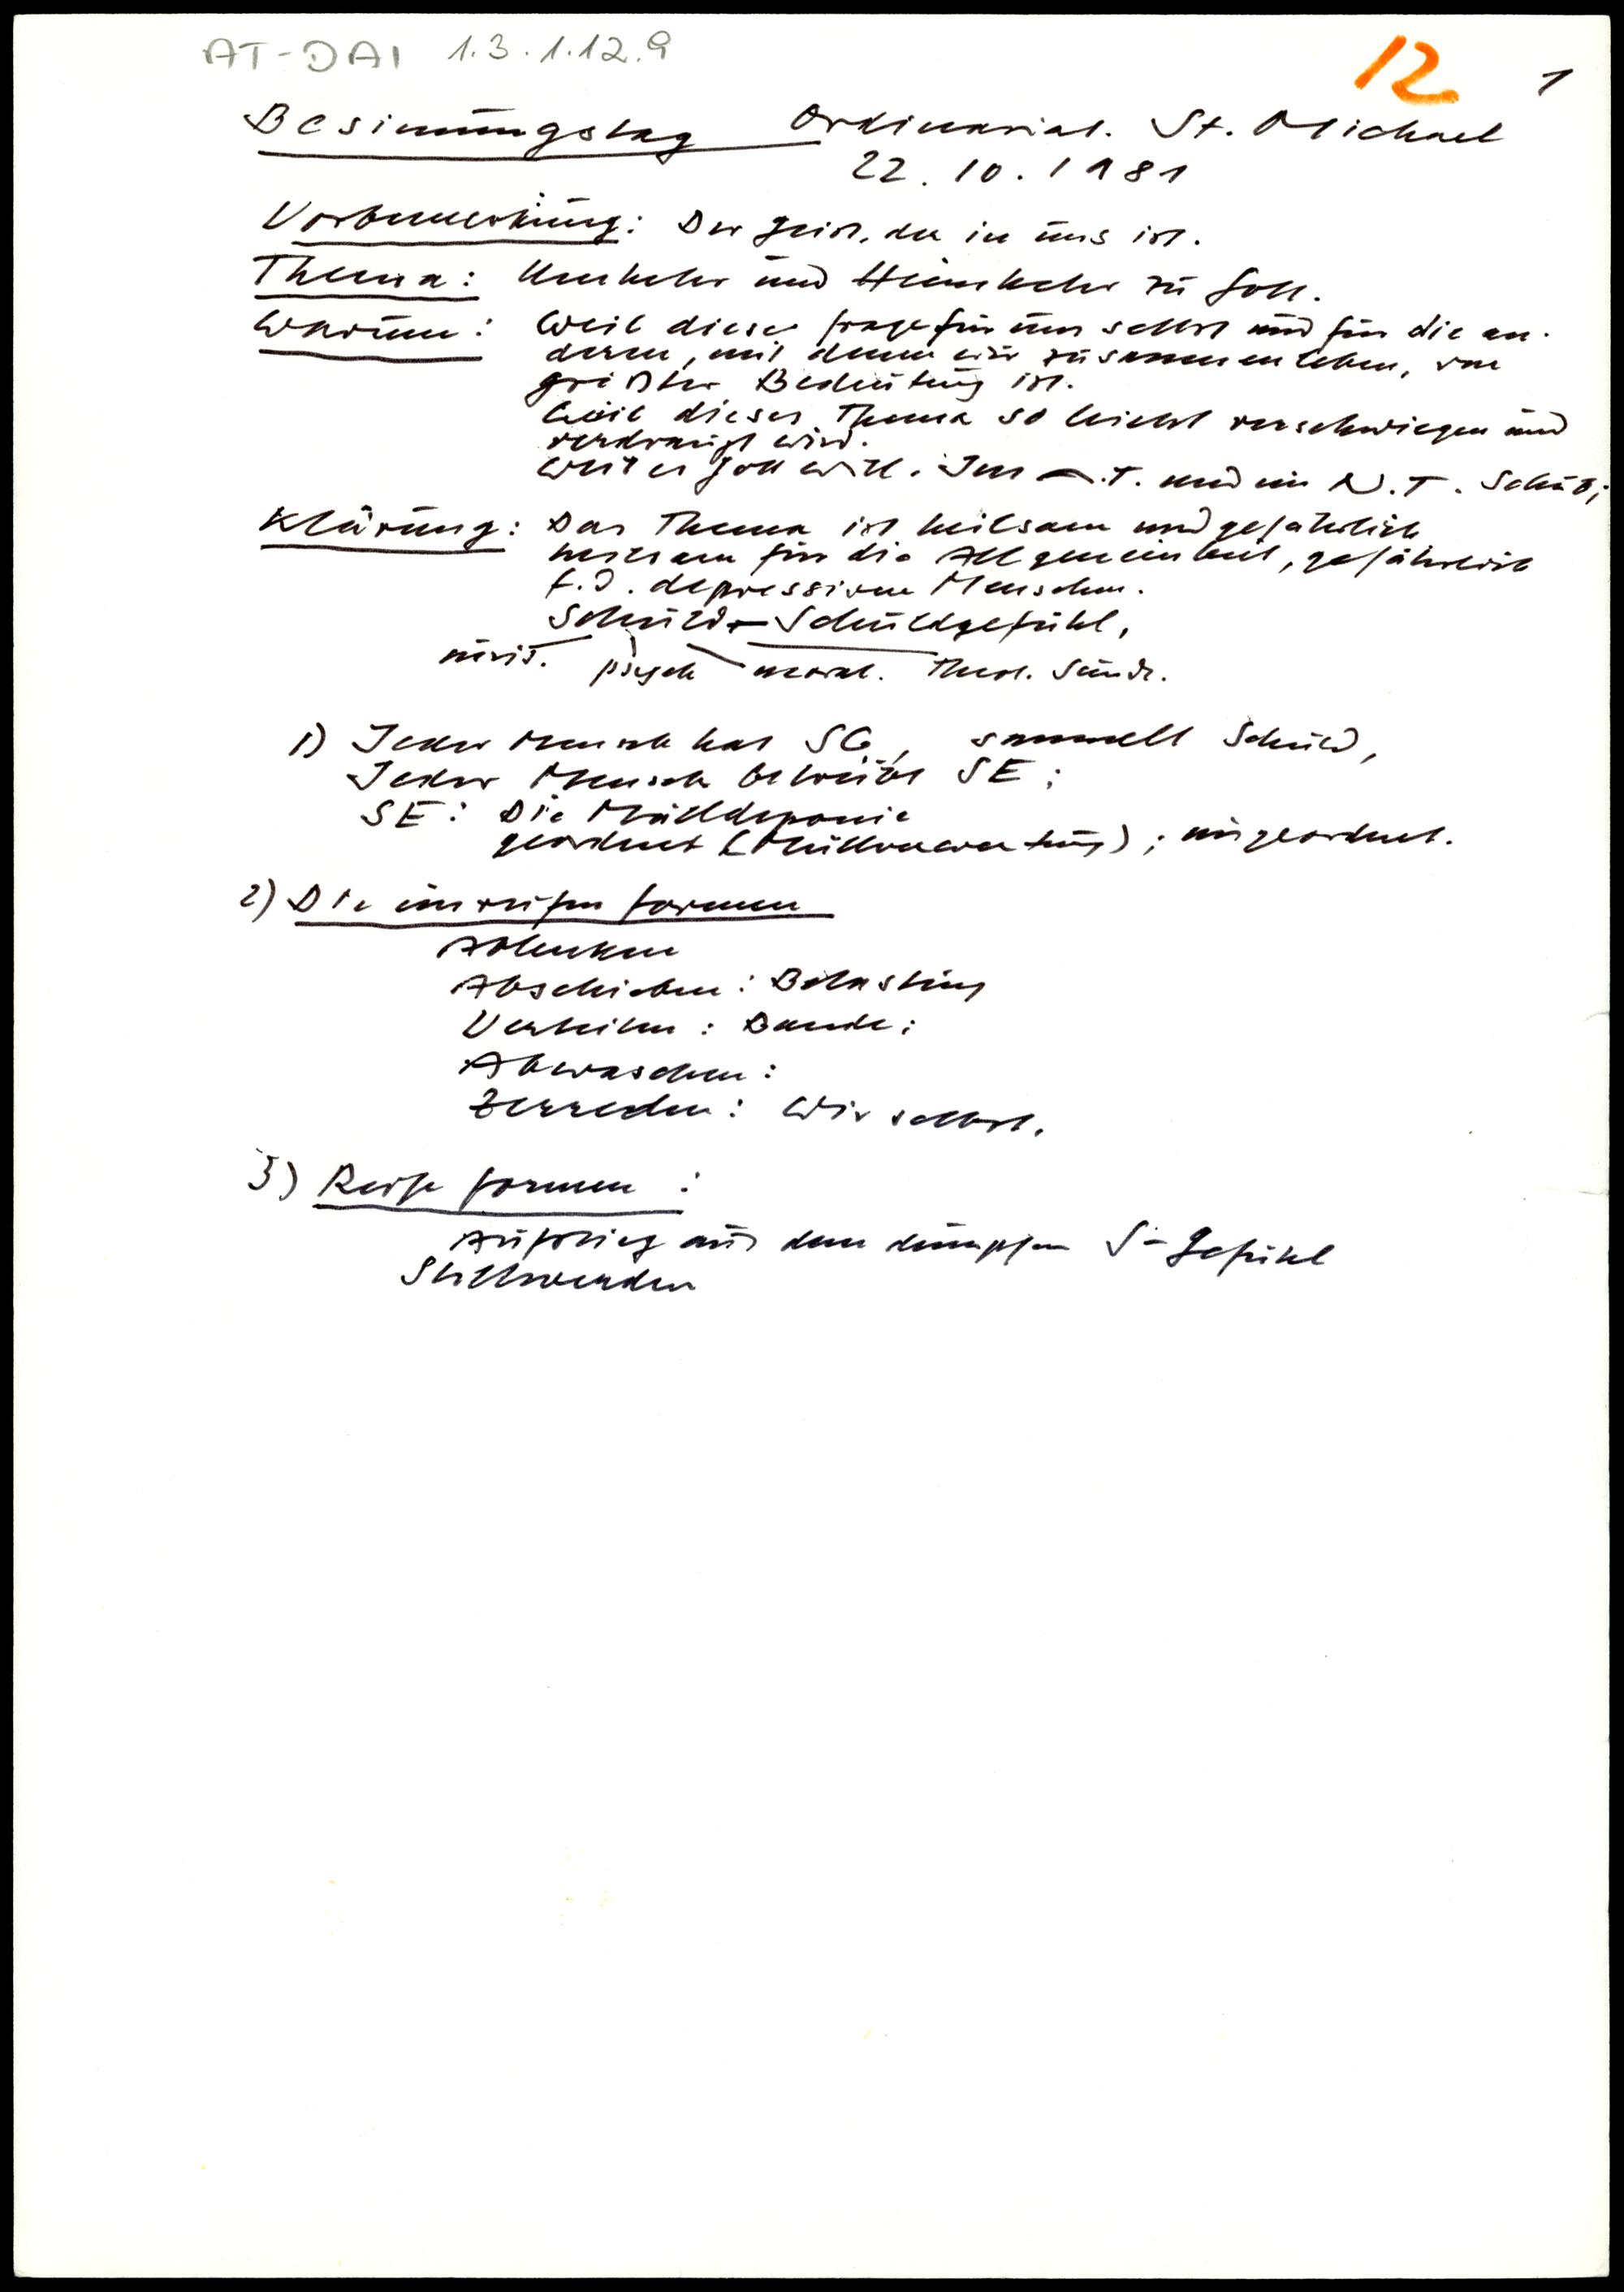 AT-DAI 1.3.1.12.9
12 1
Besinnungstag Ordinariat. St. Michael
22. 10. 1981
Vorbemerkung: Der Geist, der in uns ist.
Thema: Umkehr und Heimkehr zu Gott.
Warum: Weil diese Frage für uns selbst und für die an-
deren, mit denen wir zusammenleben, von
größter Bedeutung ist.
Weil dieses Thema so leicht verschwiegen und
verdrängt wird.
Weil es Gott will. Im A.T. und im N.T.
Klärung: Das Thema ist heilsam und gefährlich
heilsam für die Allgemeinheit, gefährlich
f. d. depressiven Menschen.
Schuld - Schuldgefühl,
psych moral. Theol. Sünde.
1) Jeder Mensch hat SG, sammelt Schuld,
Jeder Mensch betreibt SE;
SE: Die Mülldeponie
geordnet (Müllverwertung); ungeordnet.
2) Die unreifen Formen
Ablenken
Abschieben: Belastung
Verteilen: Bande;
Abwaschen:
Zerreden: Wir selbst.
3) Reife Formen:
Aufstieg aus dem dumpfen S-Gefühl
Stillwerden